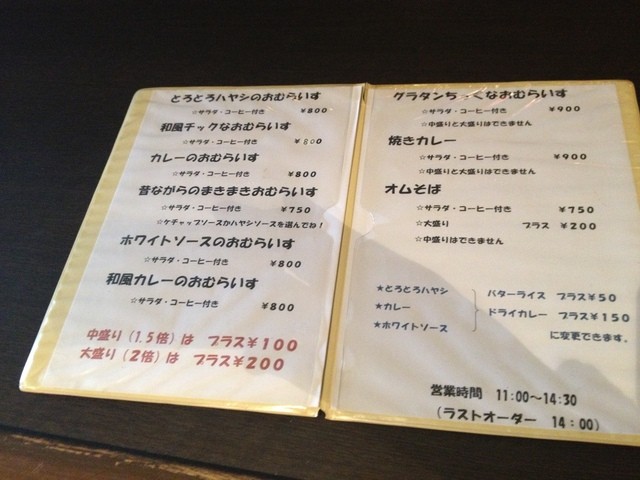 とろとろハヤシのおむらいす
☆サラダ・コーヒー付き ￥800
和風チックなおむらいす
☆サラダ・コーヒー付き ￥800
カレーのおむらいす
☆サラダ・コーヒー付き ￥800
昔ながらのまきまきおむらいす
☆サラダ・コーヒー付き ￥750
☆ケチャップソースかハヤシソースを選んでね！
ホワイトソースのおむらいす
☆サラダ・コーヒー付き ￥800
和風カレーのおむらいす
☆サラダ・コーヒー付き ￥800
中盛り（1.5倍）は プラス￥100
大盛り（2倍）は プラス￥200
グラタンちっくなおむらいす
☆サラダ・コーヒー付き ￥900
☆中盛りと大盛りはできません
焼きカレー
☆サラダ・コーヒー付き ￥900
☆中盛りと大盛りはできません
オムそば
☆サラダ・コーヒー付き ￥750
☆大盛り プラス ￥200
☆中盛りはできません
★とろとろハヤシ バターライス プラス￥50
★カレー ドライカレー プラス￥150
★ホワイトソース に変更できます。
営業時間 11:00～14:30
（ラストオーダー 14:00）